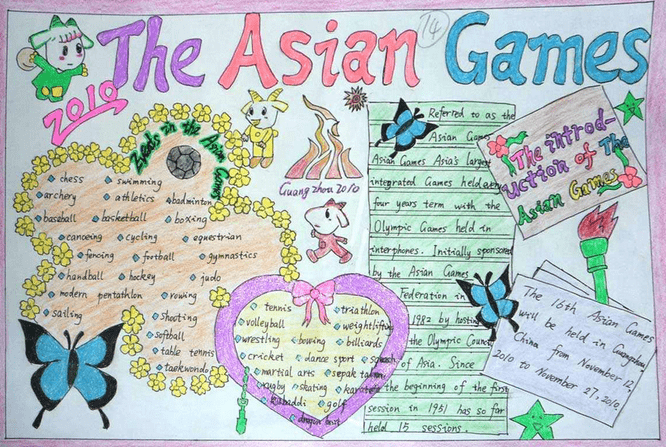 The Asian Games
14
2010
Guangzhou 2010
chess swimming
archery athletics badminton
baseball basketball boxing
canoeing cycling equestrian
fencing football gymnastics
handball hockey judo
modern pentathlon rowing
sailing shooting
softball
table tennis
taekwondo
tennis triathlon
volleyball weightlifting
wrestling bowing billiards
cricket dance sport squash
martial arts sepak takraw
rugby skating karate
kabaddi golf
dragon boat
Referred to as the
Asian Games
Asian Games Asia's largest
integrated Games held every
four years term with the
Olympic Games held in
interphones. Initially sponsored
by the Asian Games
Federation in
1982 by hosting
the Olympic Council
of Asia. Since
the beginning of the first
session in 1951 has so far
held 15 sessions.
The introd-
uction of The
Asian Games
The 16th Asian Games
will be held in Guangzhou
China from November 12,
2010 to November 27, 2010
in the Asian Games